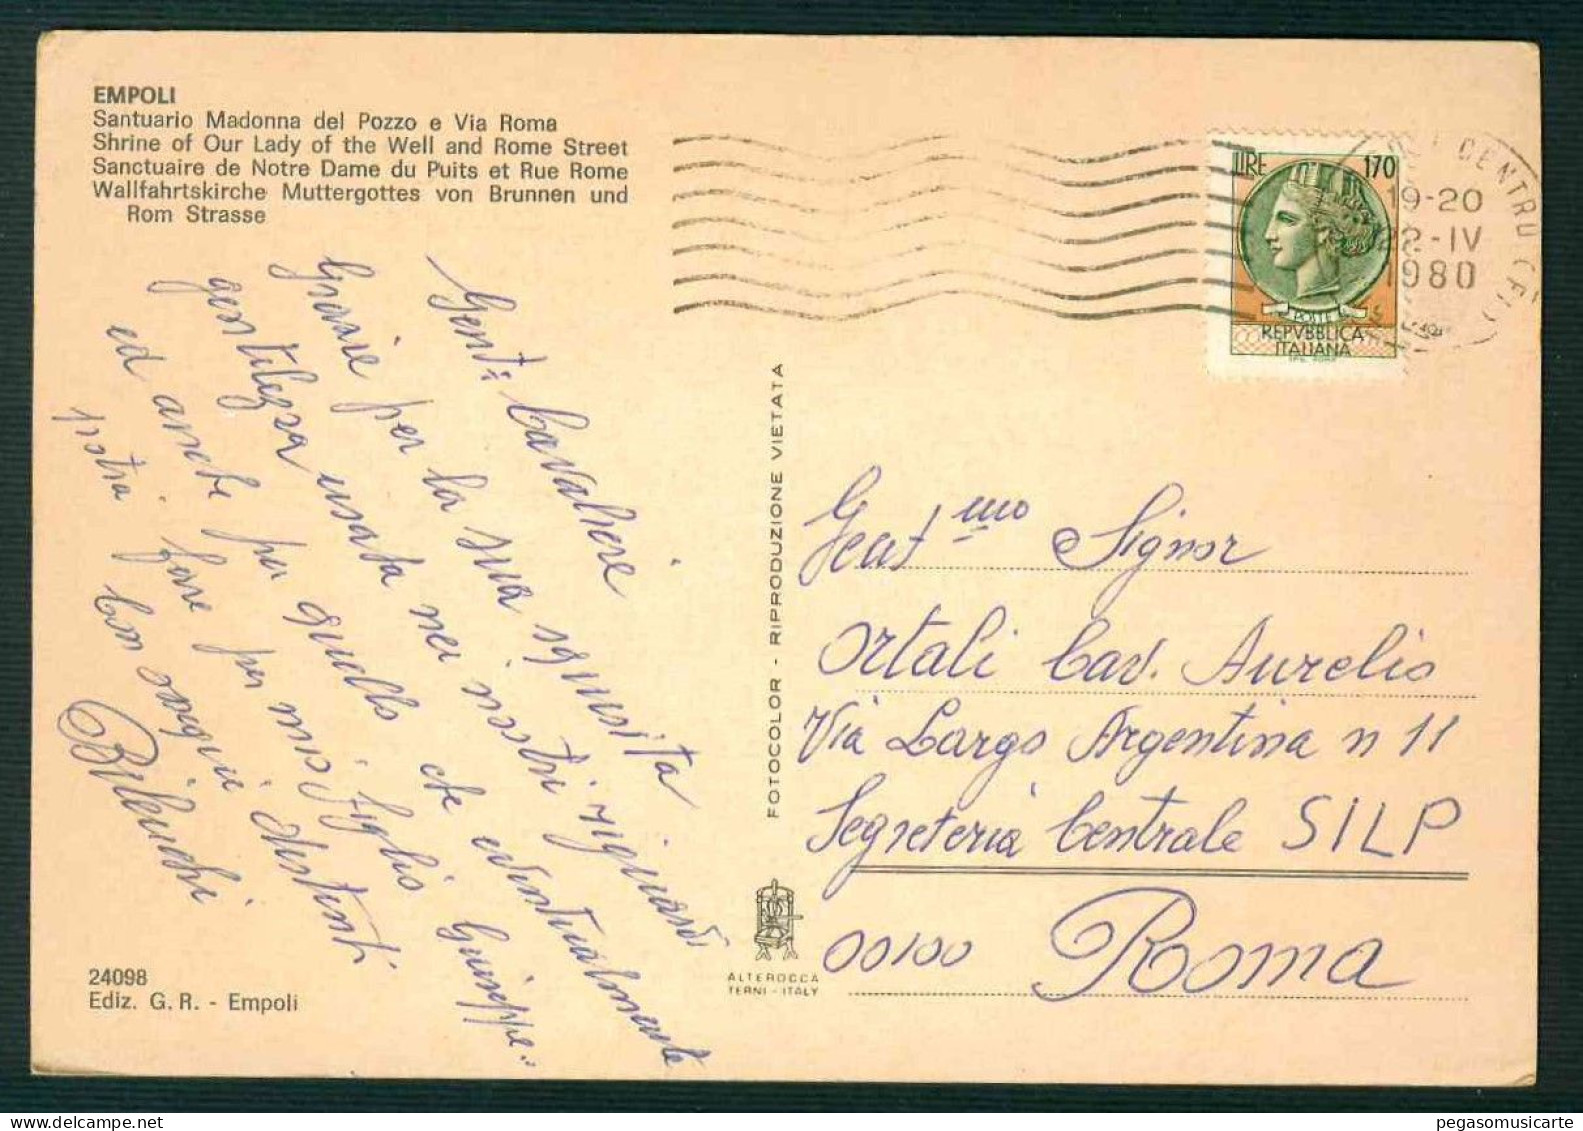 EMPOLI
Santuario Madonna del Pozzo e Via Roma
Shrine of Our Lady of the Well and Rome Street
Sanctuaire de Notre Dame du Puits et Rue Rome
Wallfahrtskirche Muttergottes von Brunnen und
Rom Strasse
LIRE 170
POSTE
REPVBBLICA
ITALIANA
CENTRO (FI)
19-20
22-IV
1980
Gent: Cavaliere
Grazie per la sua squisita
gentilezza usata nei nostri riguardi
ed anche per quello che eventualmente
potrà fare per mio figlio Giuseppe.
Con ossequi distinti
FOTOCOLOR - RIPRODUZIONE VIETATA
Gent mo Signor
Ortali Cav. Aurelio
Via Largo Argentina n 11
Segreteria Centrale SILP
00100 Roma
ALTEROCCA
TERNI - ITALY
24098
Ediz. G. R. - Empoli
pegasomusicarte